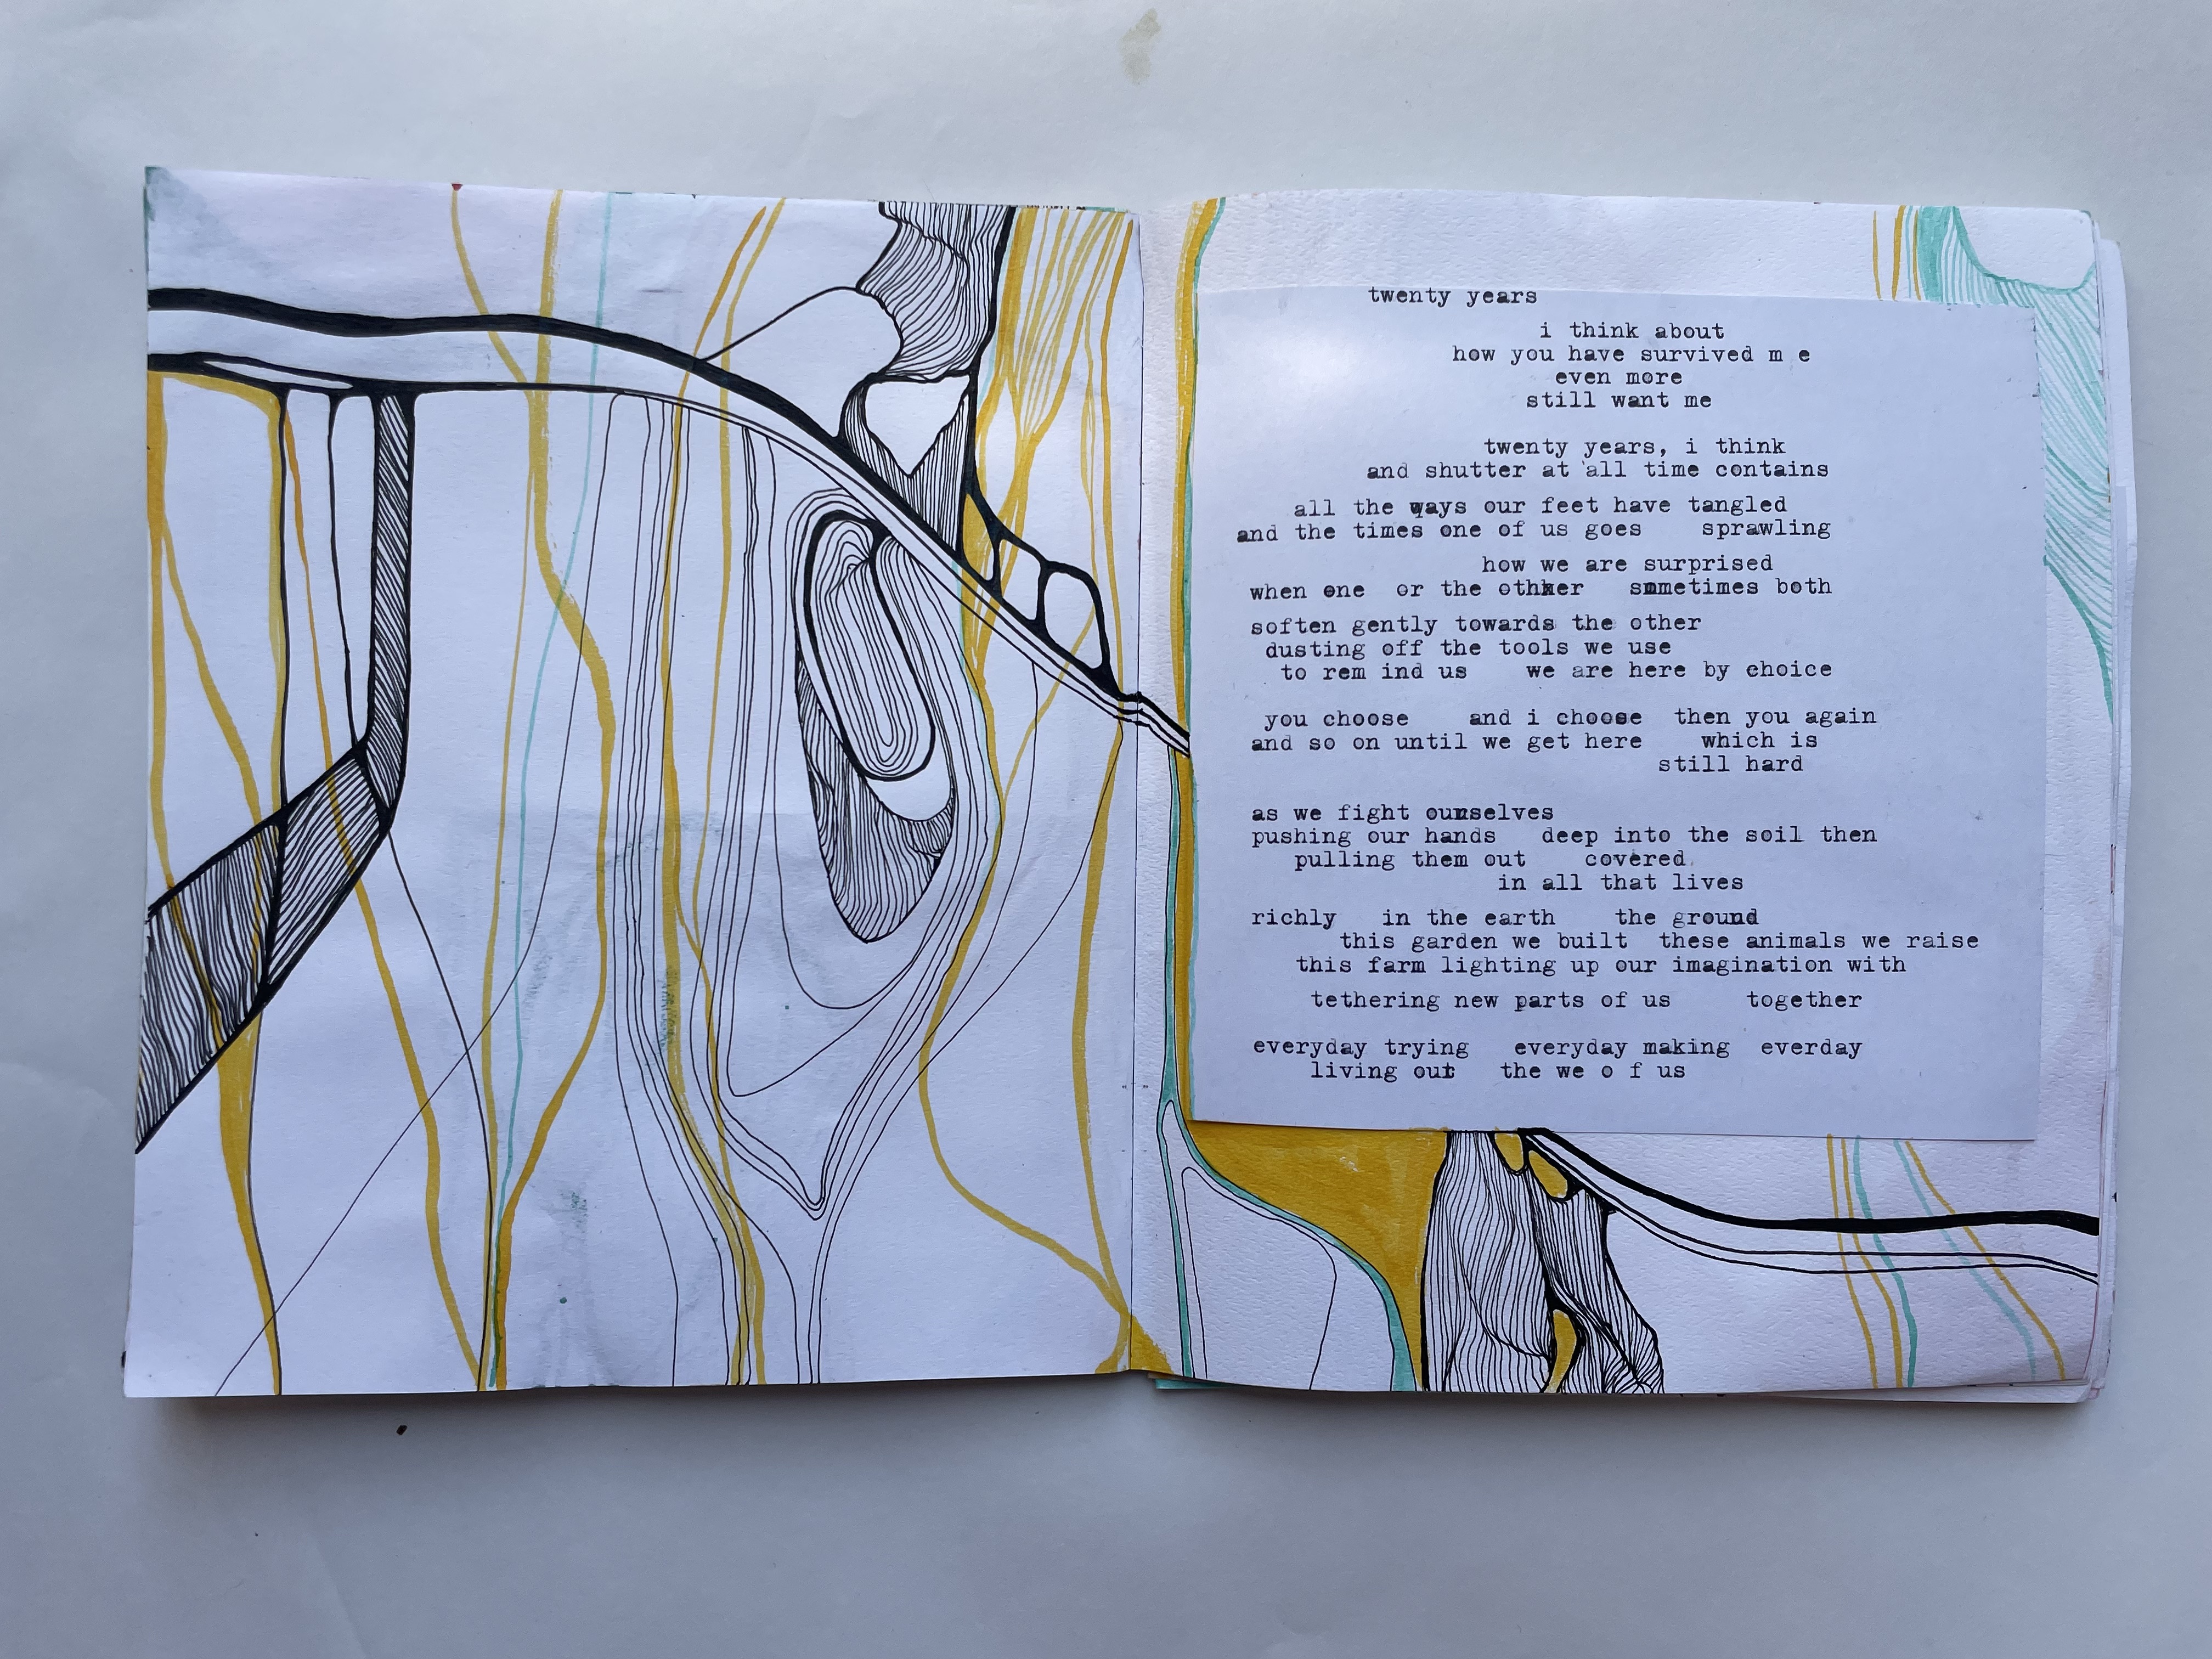 twenty years
i think about
how you have survived m e
even more
still want me
twenty years, i think
and shutter at all time contains
all the ways our feet have tangled
and the times one of us goes sprawling
how we are surprised
when one or the other sometimes both
soften gently towards the other
dusting off the tools we use
to rem ind us we are here by choice
you choose and i choose then you again
and so on until we get here which is
still hard
as we fight ourselves
pushing our hands deep into the soil then
pulling them out covered
in all that lives
richly in the earth the ground
this garden we built these animals we raise
this farm lighting up our imagination with
tethering new parts of us together
everyday trying everyday making everday
living out the we o f us